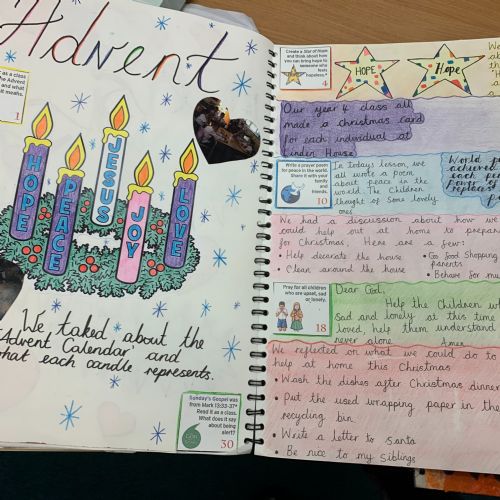 Advent
as a class
the Advent
and what
it means.
1
HOPE
PEACE
JESUS
JOY
LOVE
We talked about the
'Advent Calendar' and
what each candle represents.
Sunday's Gospel was
from Mark 13:33-37*
Read it as a class.
What does it say
about being
alert?
30
Create a Star of Hope
and think about how
you can bring hope to
someone who
feels
hopeless.*
4
HOPE
Hope
Our year 4 class all
made a christmas card
for each individual at
Linden House.
Write a prayer poem
for peace in the world.
Share it with your
family
and
friends.
10
In todays lesson, we
all wrote a poem
about peace in the
world. The Children
thought of some lovely
ones.
World
achieved
each
Power
replaces
We had a discussion about how we
could help out at home to prepare
for Christmas, Here are a few:
• Help decorate the house
• Clean around the house
• Go food Shopping
parents
• Behave for
Pray for all children
who are upset, sad
or lonely.
18
Dear God,
Help the Children
Sad and lonely at this time
loved, help them understand
never alone. Amen
We reflected on what we could do to
help at home this Christmas
• Wash the dishes after Christmas dinner
• Put the used wrapping paper in the
recycling bin
• Write a letter to Santa
• Be nice to my siblings